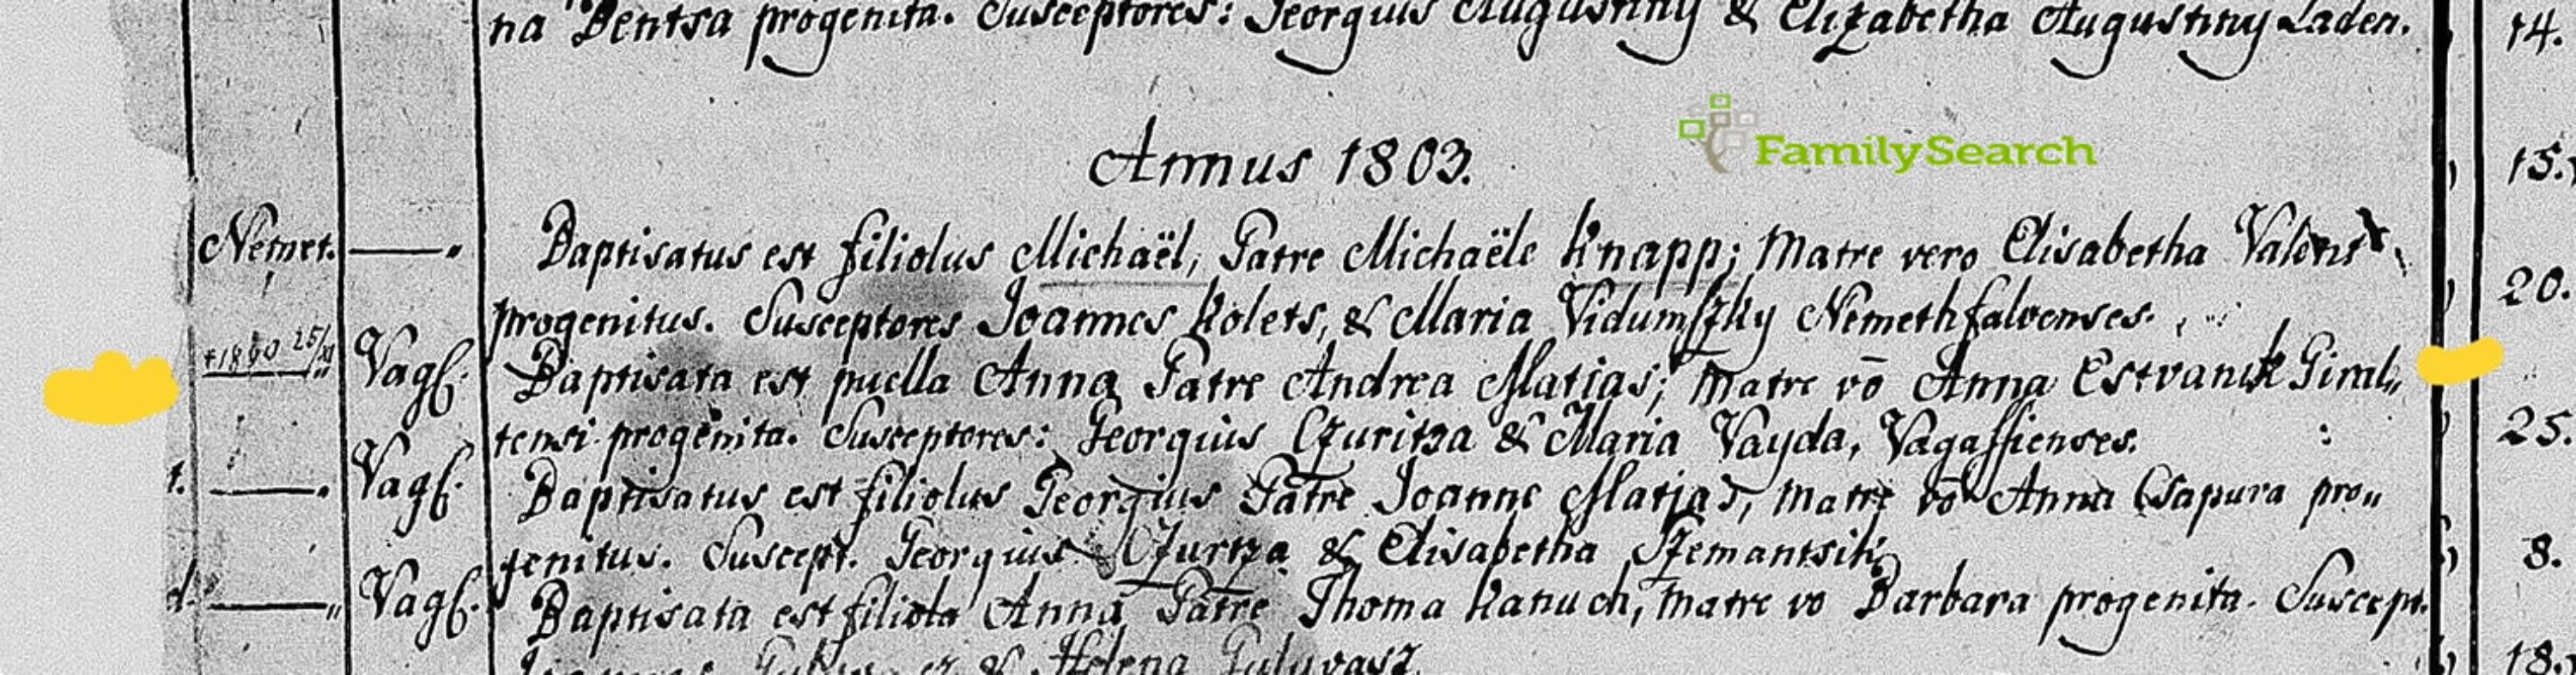 na Bentsa progenita. Susceptores: Georgius Augustiny & Elizabetha Augustiny Laden.
14.
Annus 1803.
FamilySearch
15.
Nemet. Baptisatus est filiolus Michaël, Patre Michaële Knapp; Matre vero Elisabetha
20.
progenitus. Susceptores Joannes Kolets, & Maria Vidumszky Nemethfalvenses.
Vagf. Baptisata est puella Anna Patre Andrea Matias; matre vō Anna Estvanik Giral„
tensi progenita. Susceptores: Georgius Czuritza & Maria Vayda, Vagassienses.
25.
t. Vagf. Baptisatus est filiolus Georgius Patre Joanne Matjas, matre vō Anna Csapura pro„
genitus. Suscept. Georgius Czurtza & Elisabetha Szemantsik
8.
d. Vagf. Baptisata est filiola Anna Patre Thoma Kanuch, matre vo Barbara progenita. Suscept.
& Helena
18.